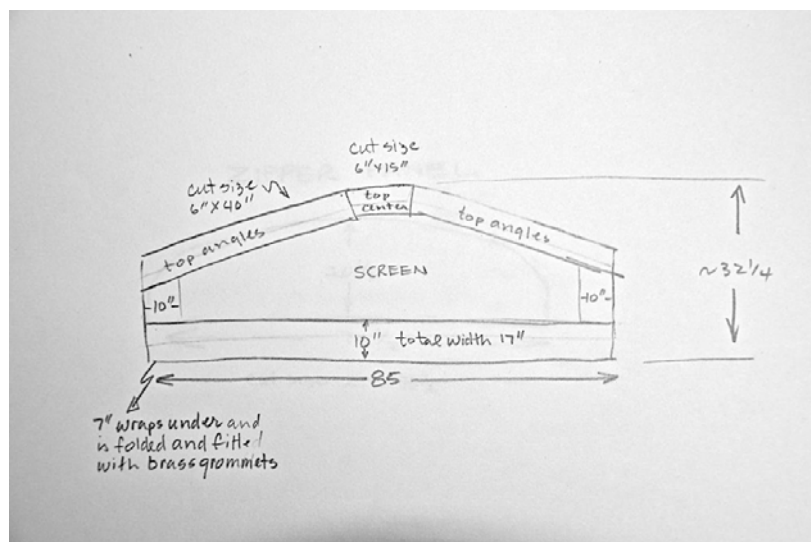 cut size
6"x15"
cut size
6"x40"
top
center
top angles
top angles
SCREEN
~32 1/4
10"
10"
10" total width 17"
85
7" wraps under and
is folded and fitted
with brass grommets